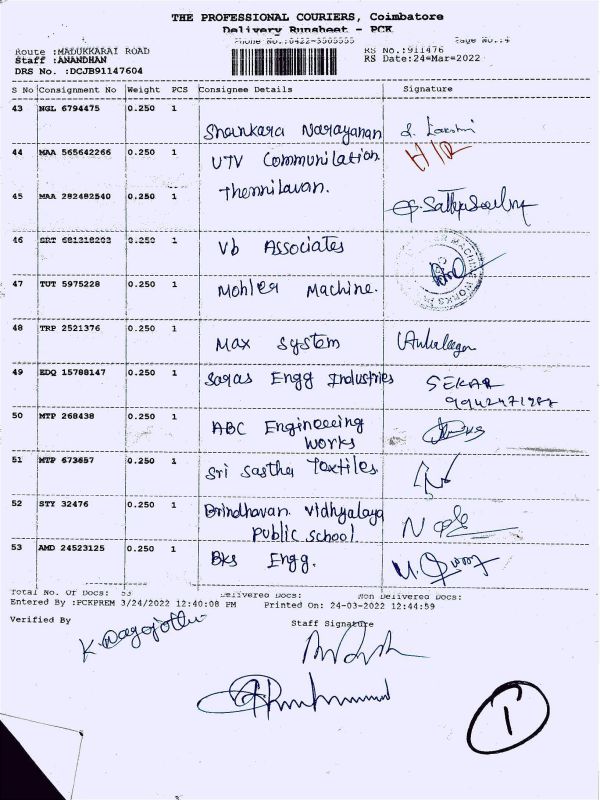 THE PROFESSIONAL COURIERS, Coimbatore
Delivery Runsheet - PCK
Phone No.:0422-3505555 Page No.:4
Route :MADUKKARAI ROAD RS No.:911476
Staff :ANANDHAN RS Date:24-Mar-2022
DRS No. :DCJB91147604
S No Consignment No Weight PCS Consignee Details Signature
43 NGL 6794475 0.250 1
Shankara Narayanan
44 MAA 565642266 0.250 1
UTV Communilation
Thennilavan.
45 MAA 282482540 0.250 1
46 SRT 681318203 0.250 1
Vb Associates
47 TUT 5975228 0.250 1
Mohler Machine.
48 TRP 2521376 0.250 1
Max System
49 EDQ 15788147 0.250 1
Saras Engg Industries SEKAR
50 MTP 268438 0.250 1
ABC Engineering
Works
51 MTP 673657 0.250 1
Sri Sastha Textiles
52 STY 32476 0.250 1
Brindhavan Vidhyalaya
Public School
53 AMD 24523125 0.250 1
Bks Engg.
Total No. Of Docs: 53 Delivered Docs: Non Delivered Docs:
Entered By :PCKPREM 3/24/2022 12:40:08 PM Printed On: 24-03-2022 12:44:59
Verified By Staff Signature
1